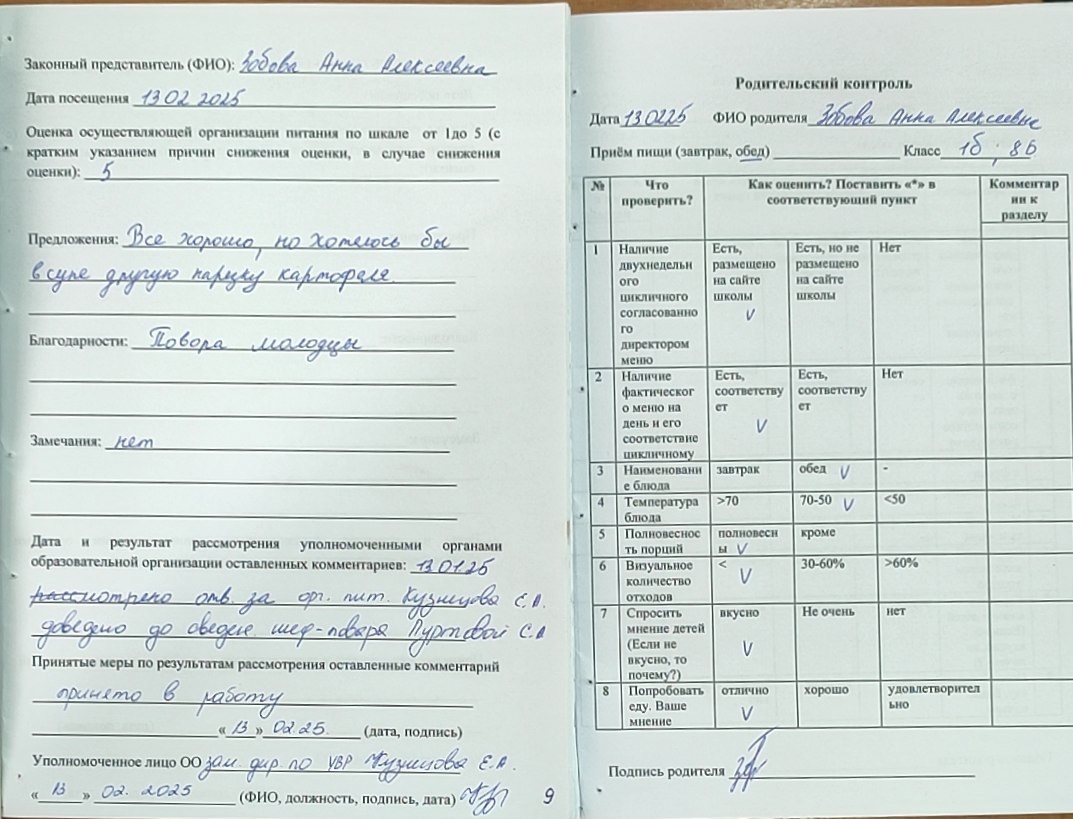 Законный представитель (ФИО): Зобова Анна Алексеевна
Дата посещения 13 02 2025
Оценка осуществляющей организации питания по шкале от 1до 5 (с
кратким указанием причин снижения оценки, в случае снижения
оценки): 5
Предложения: Все хорошо, но хотелось бы
в супе другую нарезку картофеля.
Благодарности: Повора молодцы
Замечания: нет
Дата и результат рассмотрения уполномоченными органами
образовательной организации оставленных комментариев: 13.01.25
рассмотрено отв. за орг. пит. Кузнецова Е.А.
доведено до сведен. шеф-повара С.А
Принятые меры по результатам рассмотрения оставленные комментарий
принято в работу
«13» 02.25. (дата, подпись)
Уполномоченное лицо ОО зам. дир. по УВР Кузнецова Е.А.
«13» 02. 2025 (ФИО, должность, подпись, дата)
9
Родительский контроль
Дата 130225 ФИО родителя Зобова Анна Алексеевне
Приём пищи (завтрак, обед) Класс 1б , 8Б
№ Что Как оценить? Поставить «*» в Комментар
проверить? соответствующий пункт ии к
разделу
1 Наличие Есть, Есть, но не Нет
двухнедельн размещено размещено
ого на сайте на сайте
цикличного школы школы
согласованно V
го
директором
меню
2 Наличие Есть, Есть, Нет
фактическог соответству соответству
о меню на ет ет
день и его V
соответствие
цикличному
3 Наименовани завтрак обед V -
е блюда
4 Температура >70 70-50 V <50
блюда
5 Полновеснос полновесн кроме
ть порций ы V
6 Визуальное < 30-60% >60%
количество V
отходов
7 Спросить вкусно Не очень нет
мнение детей
(Если не V
вкусно, то
почему?)
8 Попробовать отлично хорошо удовлетворител
еду. Ваше V ьно
мнение
Подпись родителя